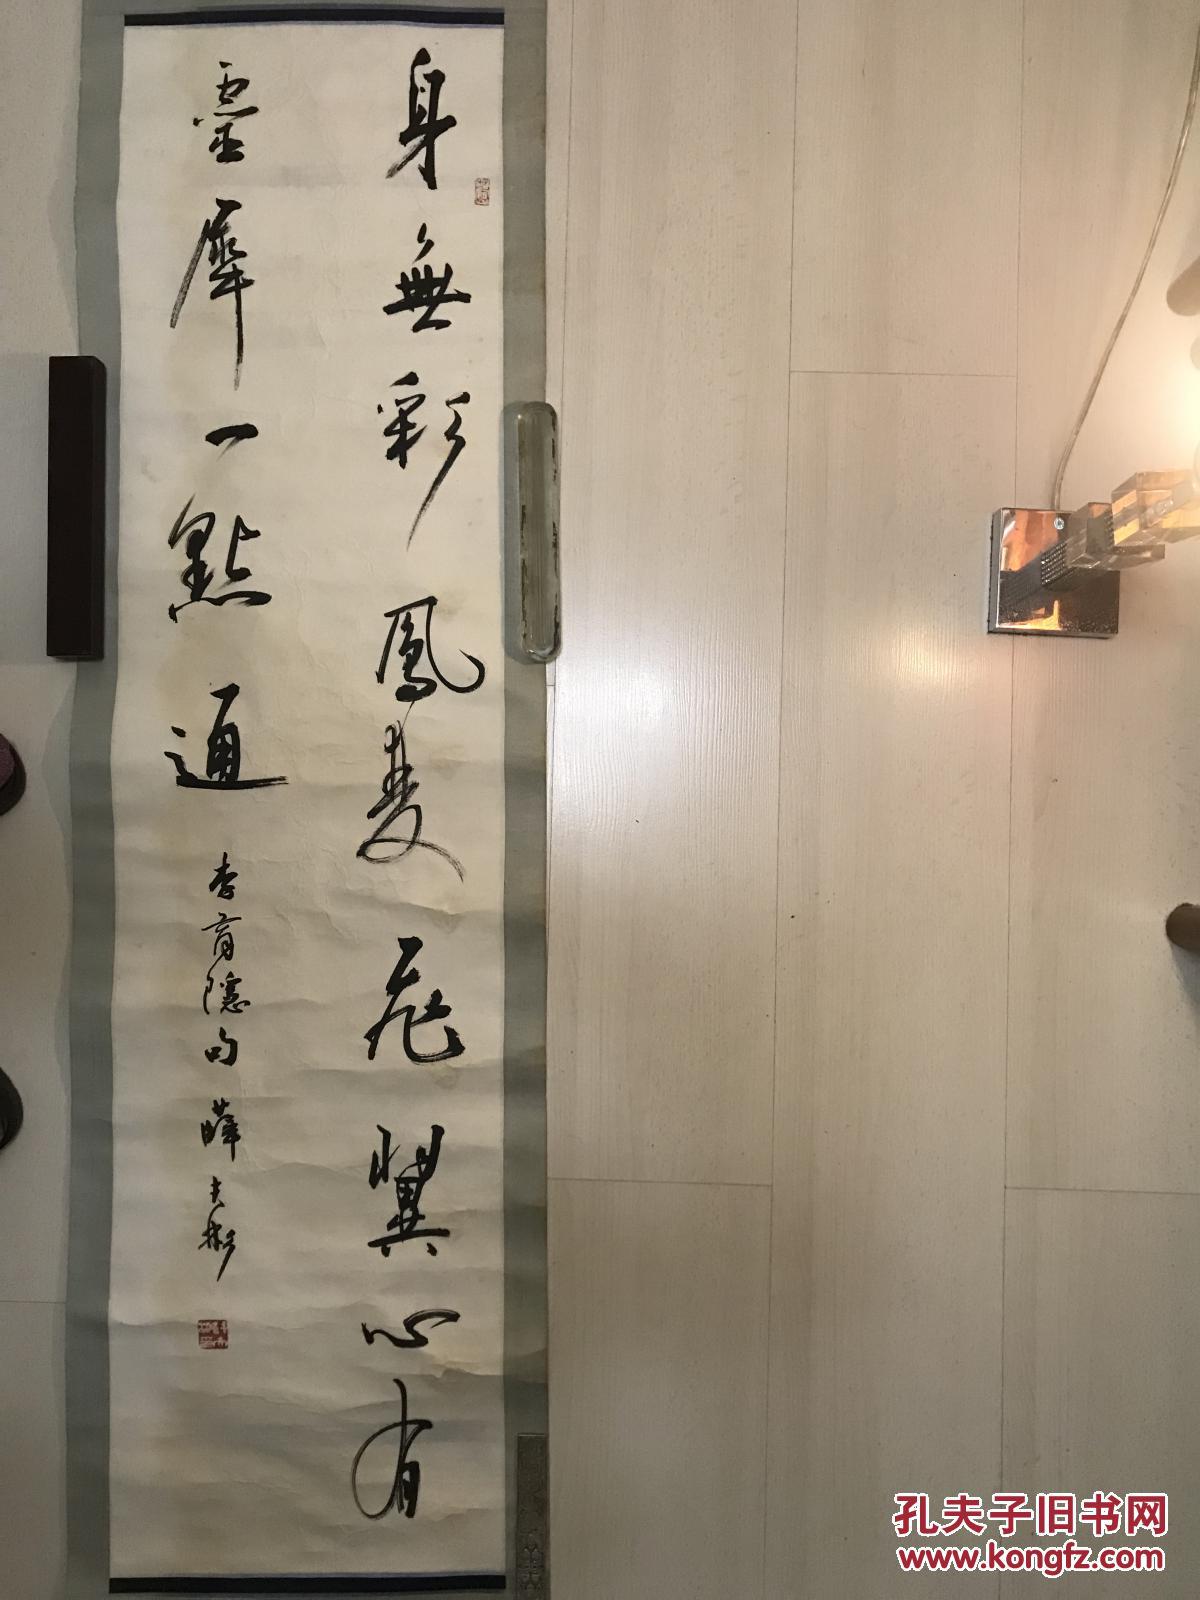 身無彩鳳雙飛翼心有
靈犀一點通 李商隱句 薛夫彬
孔夫子旧书网
www.kongfz.com